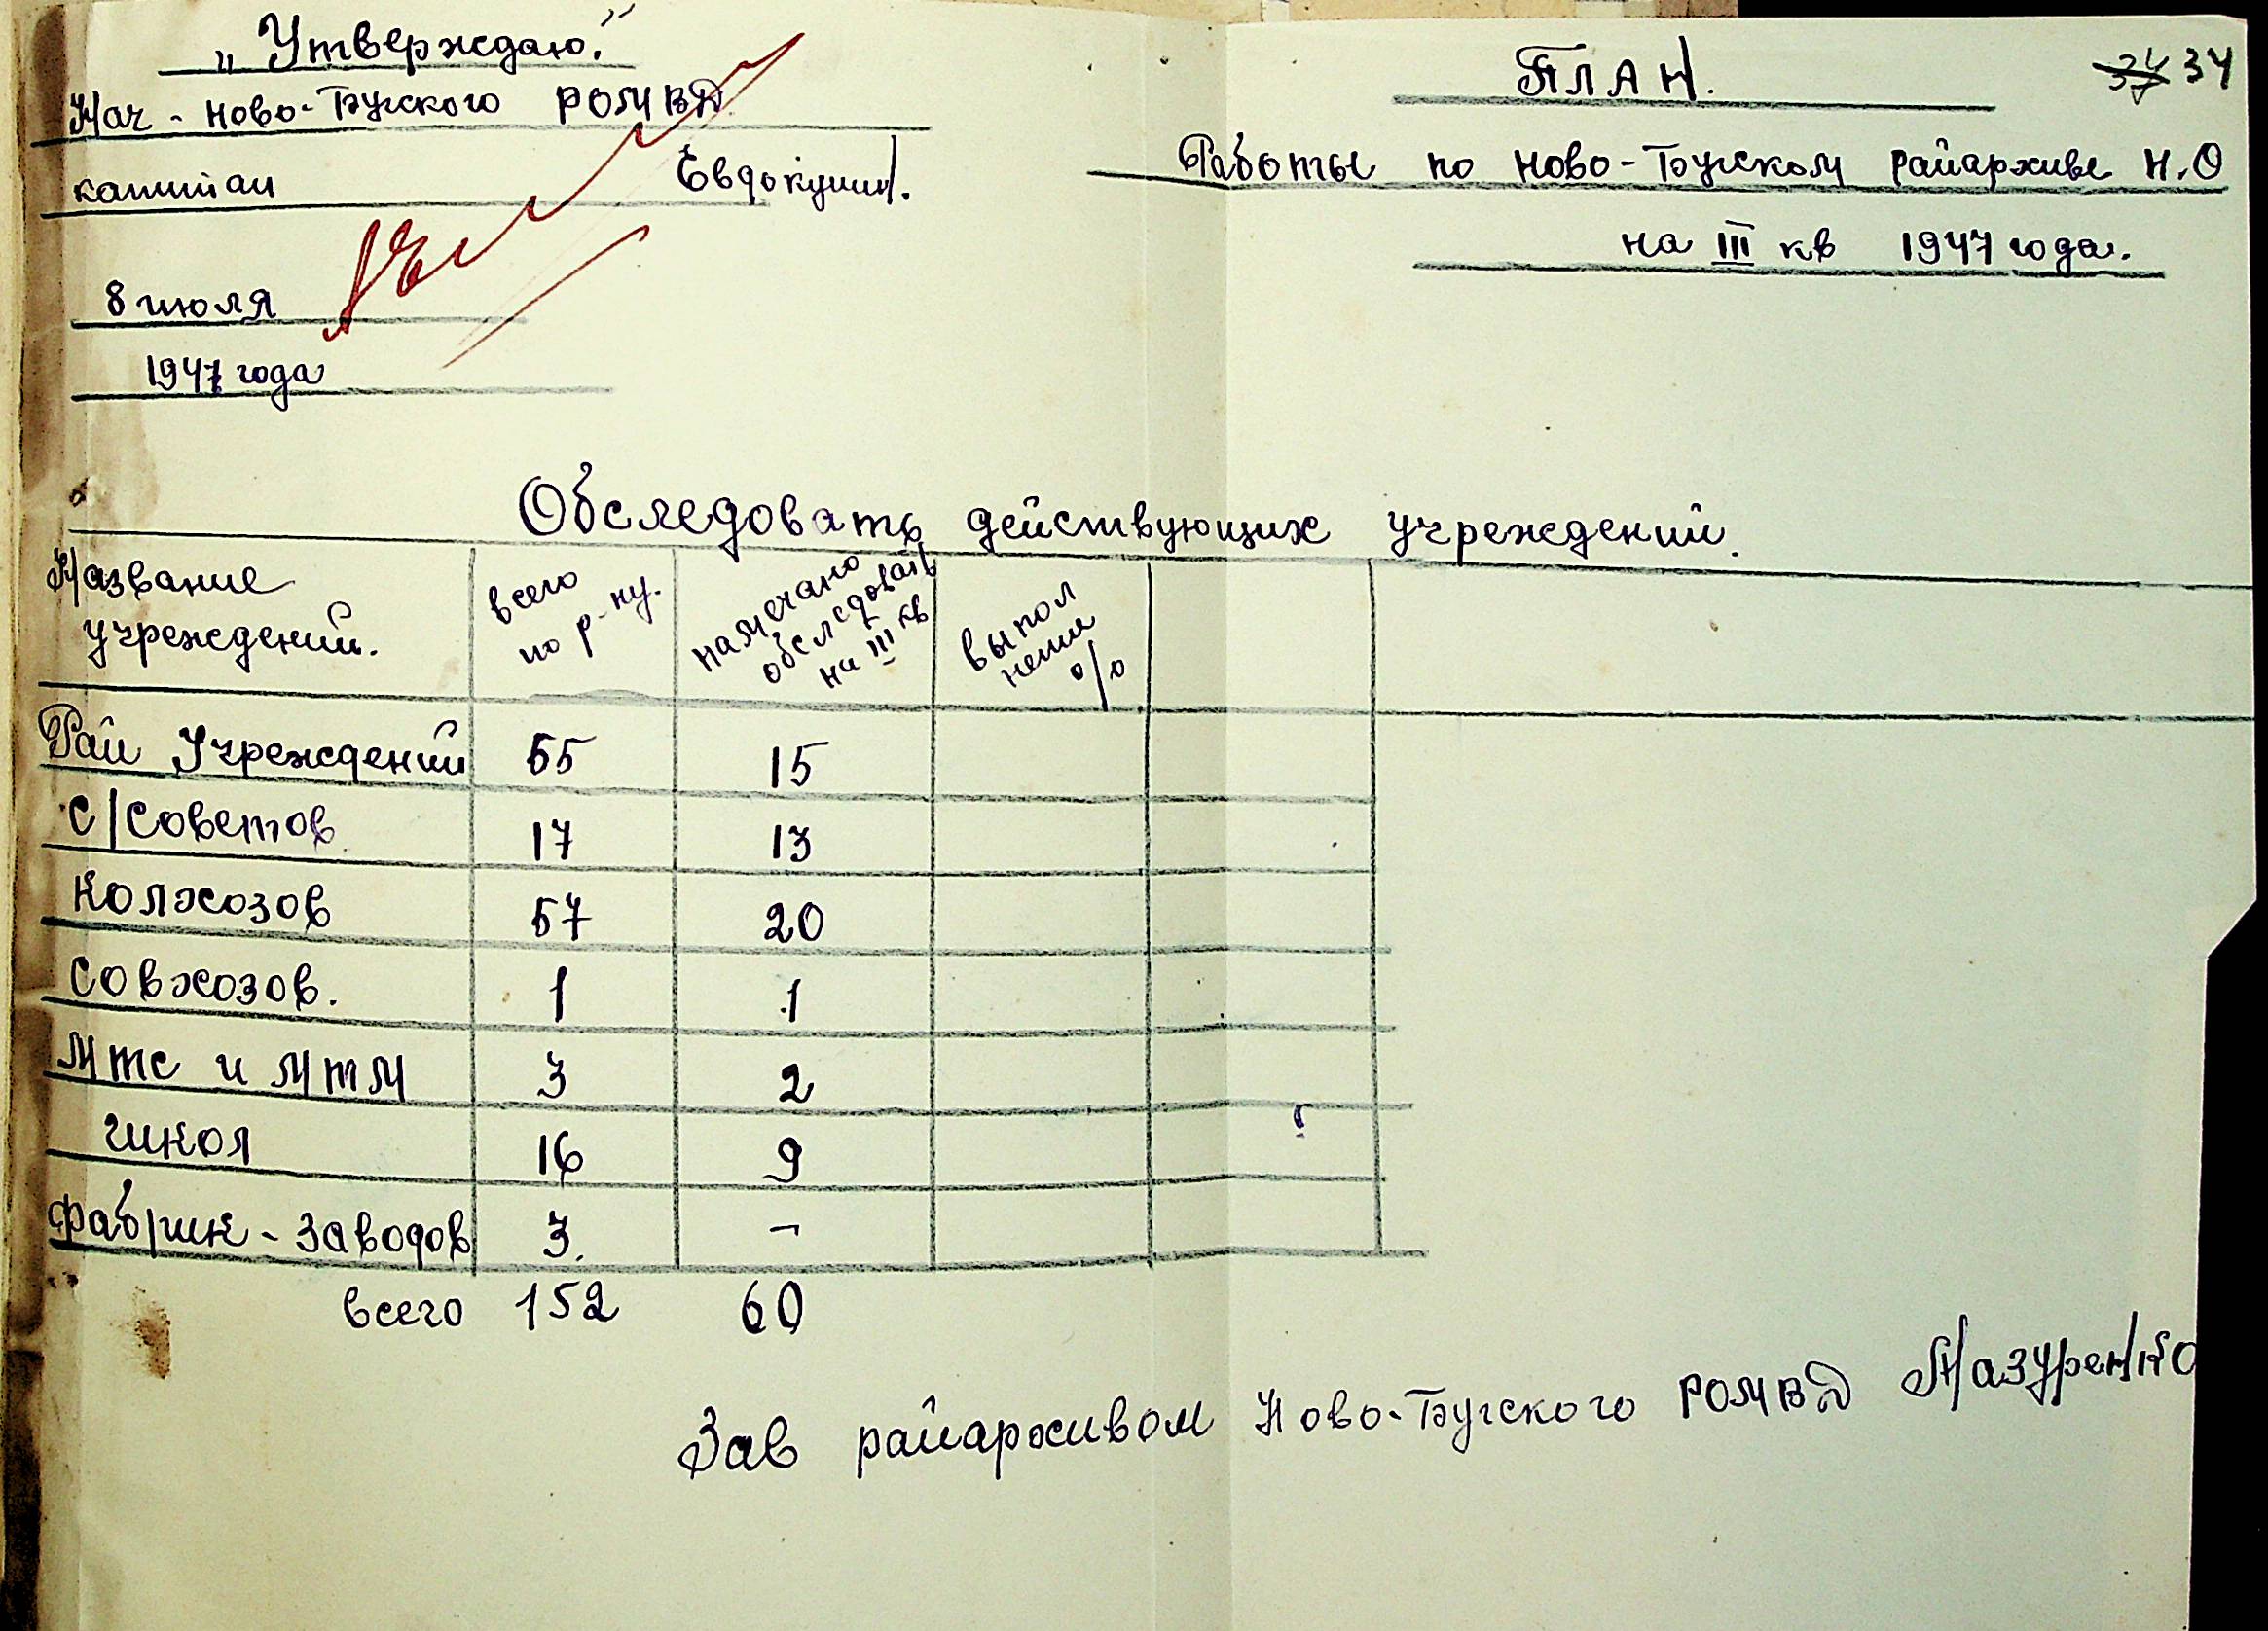 „Утверждаю."
Нач - Ново-Бугского РОМВД
капитан Евдокушин.
8 июля
1947 года
34
ПЛАН.
Работы по Ново-Бугском райархиве Н.О
на III кв 1947 года.
Обследовать действующих учреждений.
Название учреждений. всего по р-ну. намечано обследовать на III кв выпол нении %
Рай Учреждений 55 15
С/Советов 17 13
Колхозов 57 20
Совхозов. 1 1
МТС и МТМ 3 2
школ 16 9
Фабрик - заводов 3. -
всего 152 60
Зав райархивом Ново-Бугского РОМВД Мазуренко